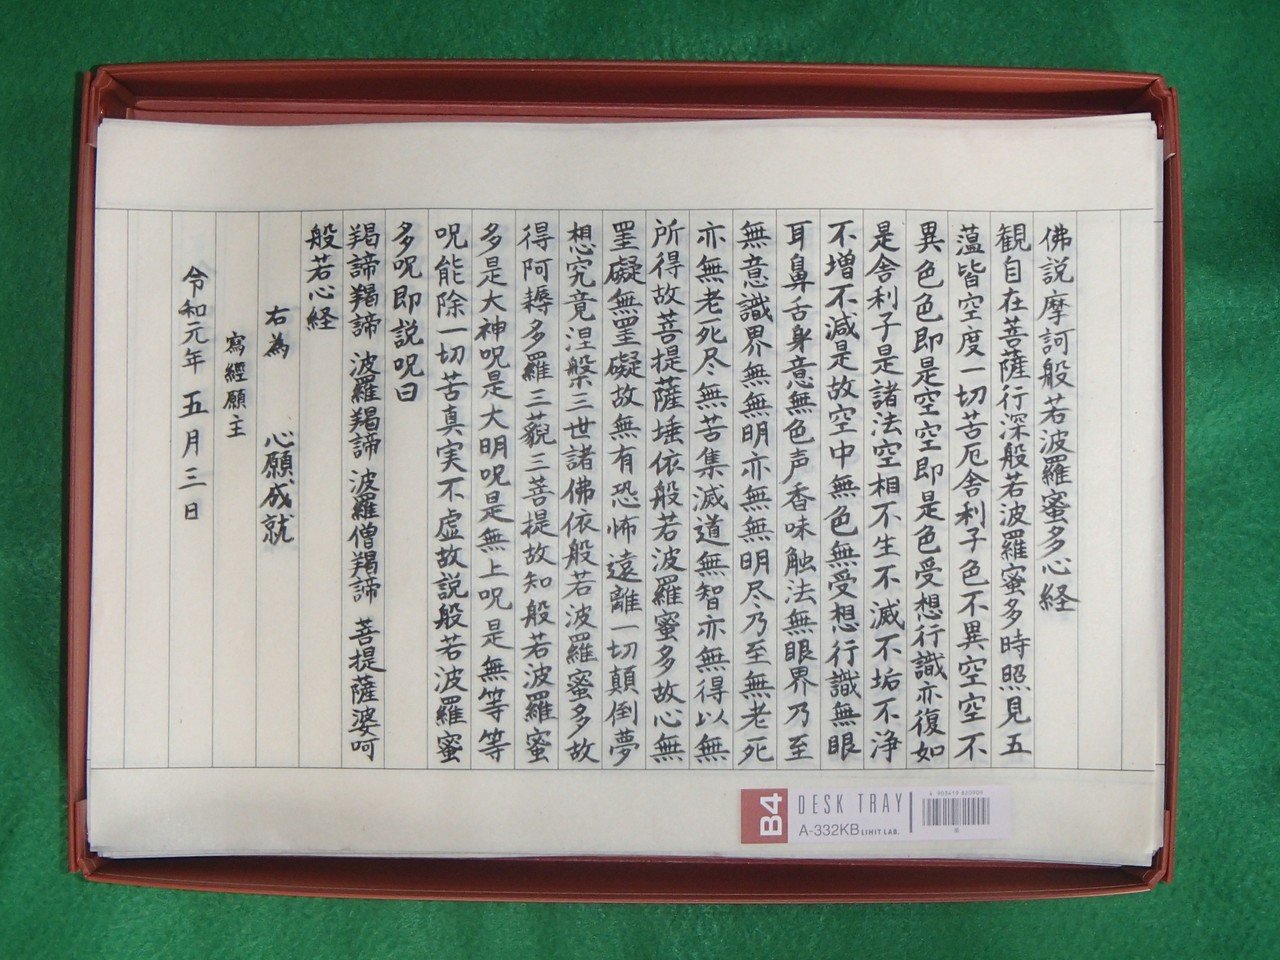 佛説摩訶般若波羅蜜多心経
観自在菩薩行深般若波羅蜜多時照見五
薀皆空度一切苦厄舎利子色不異空空不
異色色即是空空即是色受想行識亦復如
是舎利子是諸法空相不生不滅不垢不浄
不増不減是故空中無色無受想行識無眼
耳鼻舌身意無色声香味触法無眼界乃至
無意識界無無明亦無無明尽乃至無老死
亦無老死尽無苦集滅道無智亦無得以無
所得故菩提薩埵依般若波羅蜜多故心無
罣礙無罣礙故無有恐怖遠離一切顛倒夢
想究竟涅槃三世諸佛依般若波羅蜜多故
得阿耨多羅三藐三菩提故知般若波羅蜜
多是大神呪是大明呪是無上呪是無等等
呪能除一切苦真実不虚故説般若波羅蜜
多呪即説呪曰
羯諦羯諦 波羅羯諦 波羅僧羯諦 菩提薩婆呵
般若心経
右為 心願成就
寫經願主
令和元年 五月三日
B4
DESK TRAY
A-332KB LIHIT LAB.
4 903419 820909